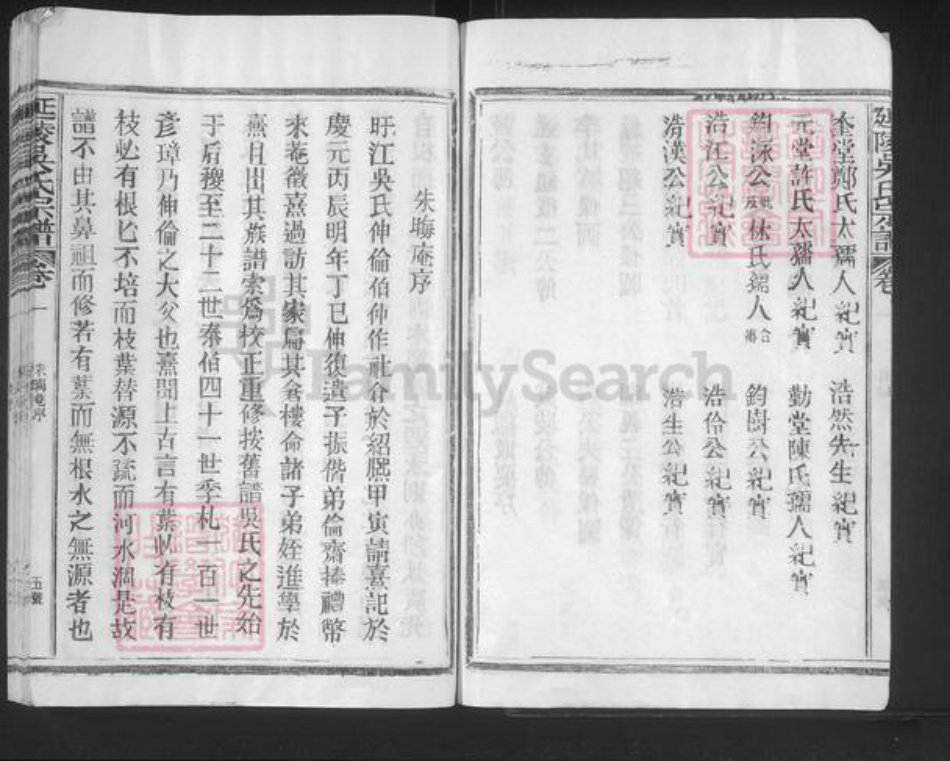 延陵吳氏宗譜
奎堂鄭氏太孺人紀實
浩然先生紀實
元堂許氏太孺人紀實
勤堂陳氏孺人紀實
鈞泳公
林氏孺人
鈞樹公紀實
浩江公紀實
浩伶公紀實
浩漢公紀實
浩生公紀實
朱晦庵序
旴江吳氏伸倫伯仲作社倉於紹熙甲寅請熹記於
慶元丙辰明年丁巳伸復遣子振偕弟倫齋捧禮幣
來菴徵熹過訪其家扁其倉樓命諸子弟姪進學於
熹且出其族譜索為校正重修按舊譜吳氏之先始
于后稷至二十二世泰伯四十一世季札一百一世
彥璋乃伸倫之大父也熹聞上古言有葉必有枝有
枝必有根七不培而枝葉替源不疏而河水涸是故
譜不由其鼻祖而修若有葉而無根水之無源者也
延陵吳氏宗譜
卷一
FamilySearch